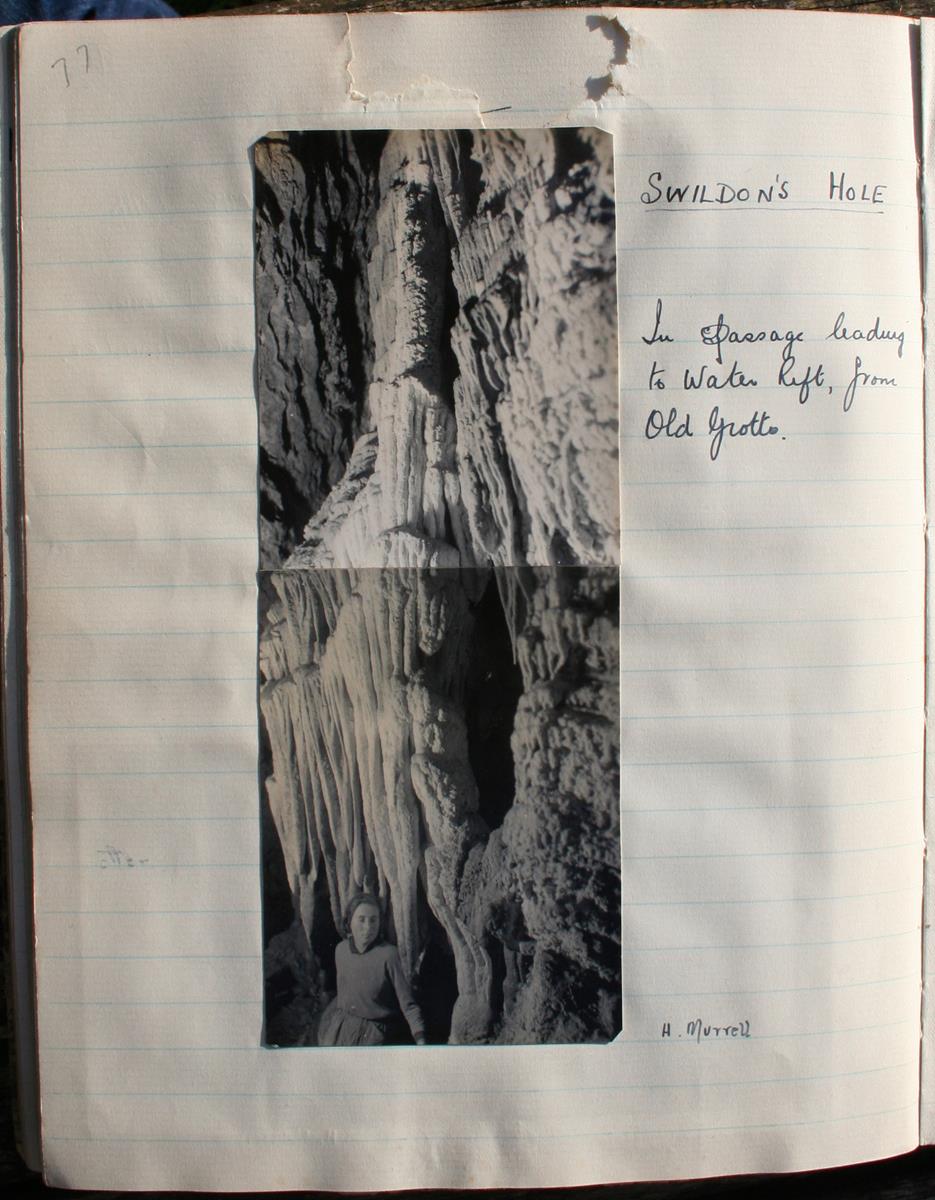 77
SWILDON'S HOLE
In passage leading
to Water Rift, from
Old Grotto.
H. Murrell